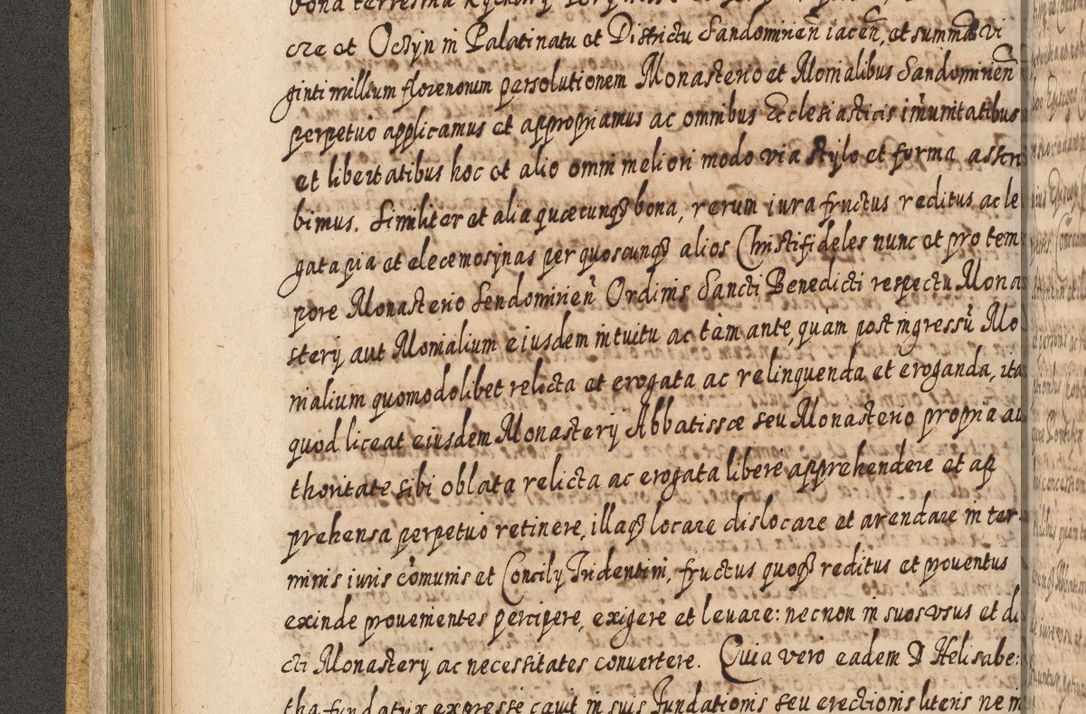 bona terrestria
cze et Oczyn in Palatinatu et Districtu Sandomirien̄ iacen̄, et summā vi
ginti millium florenorum persolutionem Monasterio et Monialibus Sandomirien̄
perpetuo applicamus et appropriamus ac omnibus Ecclesiasticis im̄unitatibus
et libertatibus hoc et alio omni meliori modo via stylo et forma asscri
bimus. Similiter et alia quæcunqʒ bona, rerum iura fructus reditus ac le
gata pia et elecemosynas per quoscunqʒ alios Christifideles nunc et pro tem
pore Monasterio Sendomirien̄ Ordinis Sancti Benedicti respectu Mona
sterij aut Monialium eiusdem intuitu ac tàm ante, quàm post ingressū Mo
nialium quomodolibet relicta et erogata ac relinquenda et eroganda, ita
quod liceat eiusdem Monasterij Abbatissæ seu Monasterio propria au
thoritate sibi oblata relicta ac erogata liberè apprehendere et ap
prehensa perpetuò retinere, illaqʒ locare dislocare et arendare in ter
minis iuris com̄unis et Concilij Tridentini, fructus quoqʒ reditus et prouentus
exinde prouenientes percipere, exigere et leuare: necnon in suos vsus et di
cti Monasterij ac necessitates conuertere. Quia vero eadem D Helisabe:
tha fundatrix expresse cauit in suis Fundationis seu erectionis literis ne in